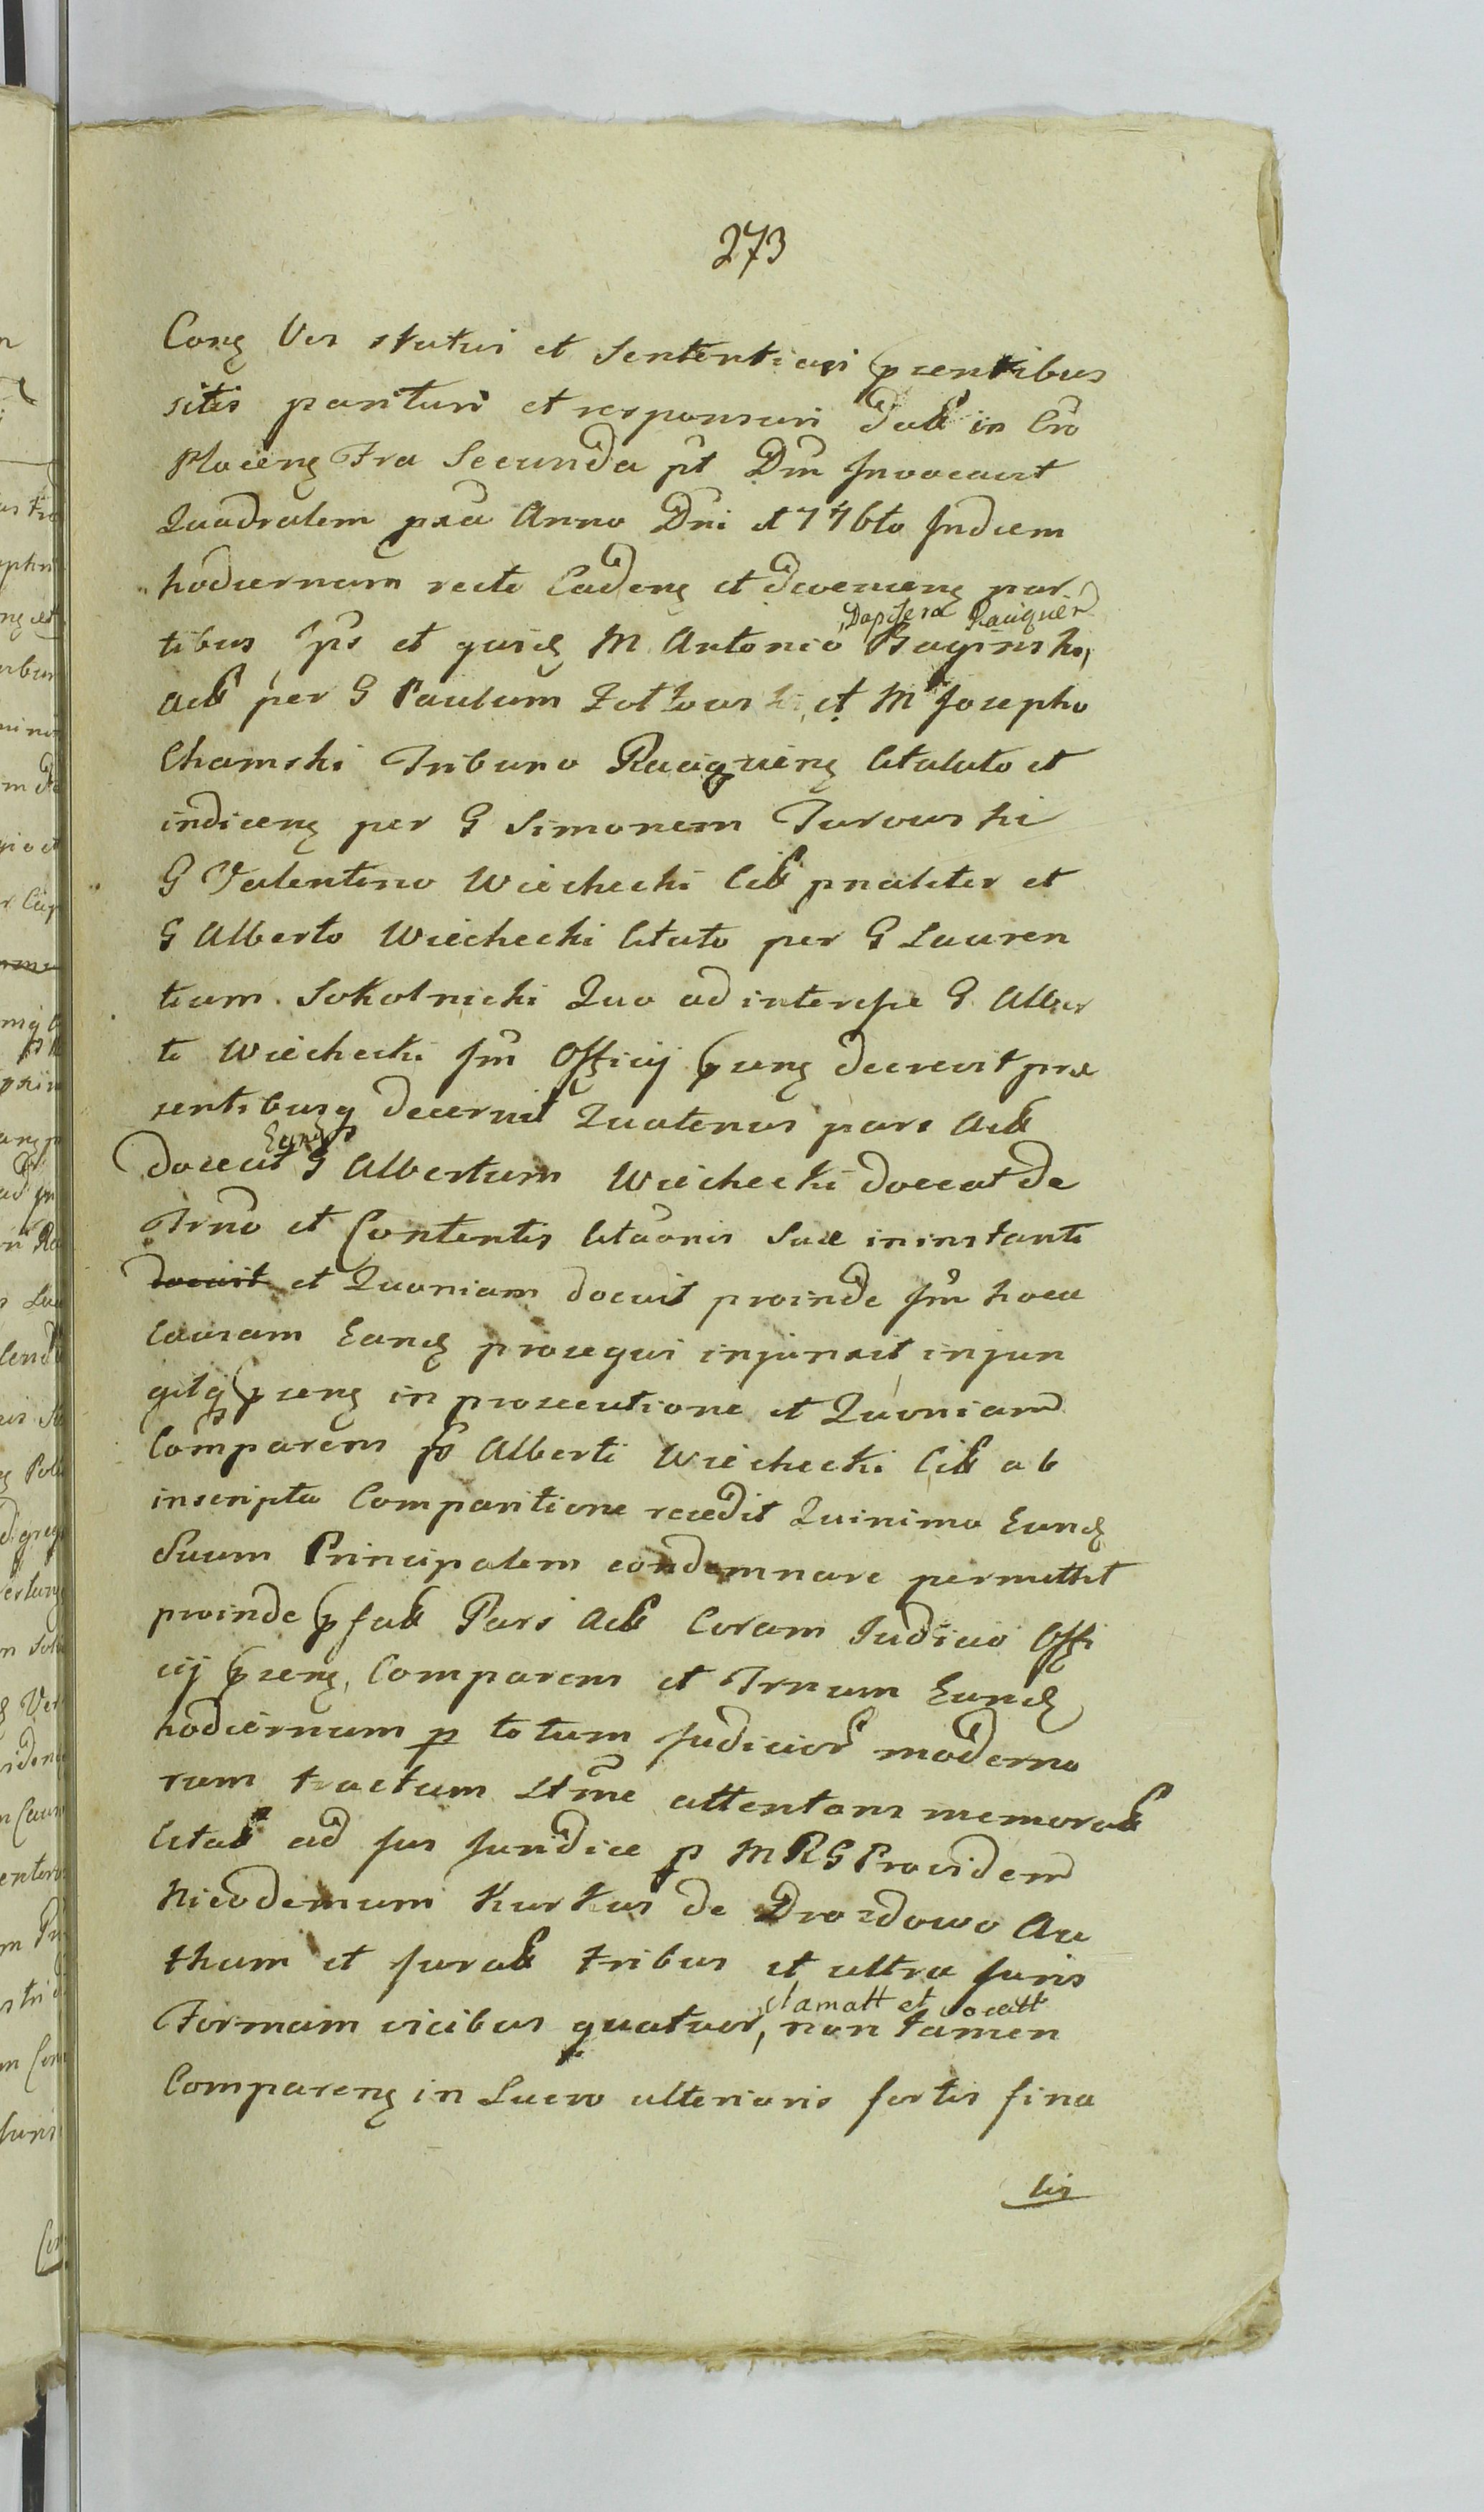 273
Conz Ves staturi et Sententiari psentibus
sitis parituri et responsuri Datt in Cro
Plocenz Fra Secunda pt Dm Invocavit
Quadralem pxa Anno Dni 1776to Indiem
hodiernum recte Cadenz et devenienz par
Dapifero Raciqnen
tibus Ips et quid M Antonio Baginski,
Actt per G Paulum Zottowski, et M Josepho
Chamski Tribuno Raciqnenz Citatuto et
indicenz per G Simonem Turowski
G Valentino Wiechecki Citt pnaliter et
G Alberto Wiechecki Citato per G Lauren
tium Sokolnicki Quo ad interesse G Alber
ti Wiechecki Jm Officij psenz decrevit prae
sentibusq decernit Quatenus pars Actt
Eund
doceat G Albertum Wiechecki doceat de
Trno et Contentis Citaonis Suae ininstanti
docuit et Quoniam docuit proinde Jm hocce
Causam Eand prosequi injunxit, injun
gitq psenz in prosecutione et Quoniam
Comparens po Alberti Wiechecki Citt ab
inscripta Comparitione recedit Quinimo Eund
Suum Principalem condemnare permittit
proinde pfatt Pars Actt Coram Judicio Offi
cij psenz, Comparens et Trnum Eund
hodiernum p totum Judicior moderno
rum tractum Ltme attentans memoratt
Citatt ad Jus Juridice p MRG Providem
Nicodemum Kurkus de Drozdowo Au
thum et Juratt tribus et ultra Juris
clamatt et vocatt
Formam vicibus quatuor, non tamen
Comparenz in Lucro ulterioris fortis fina
lis